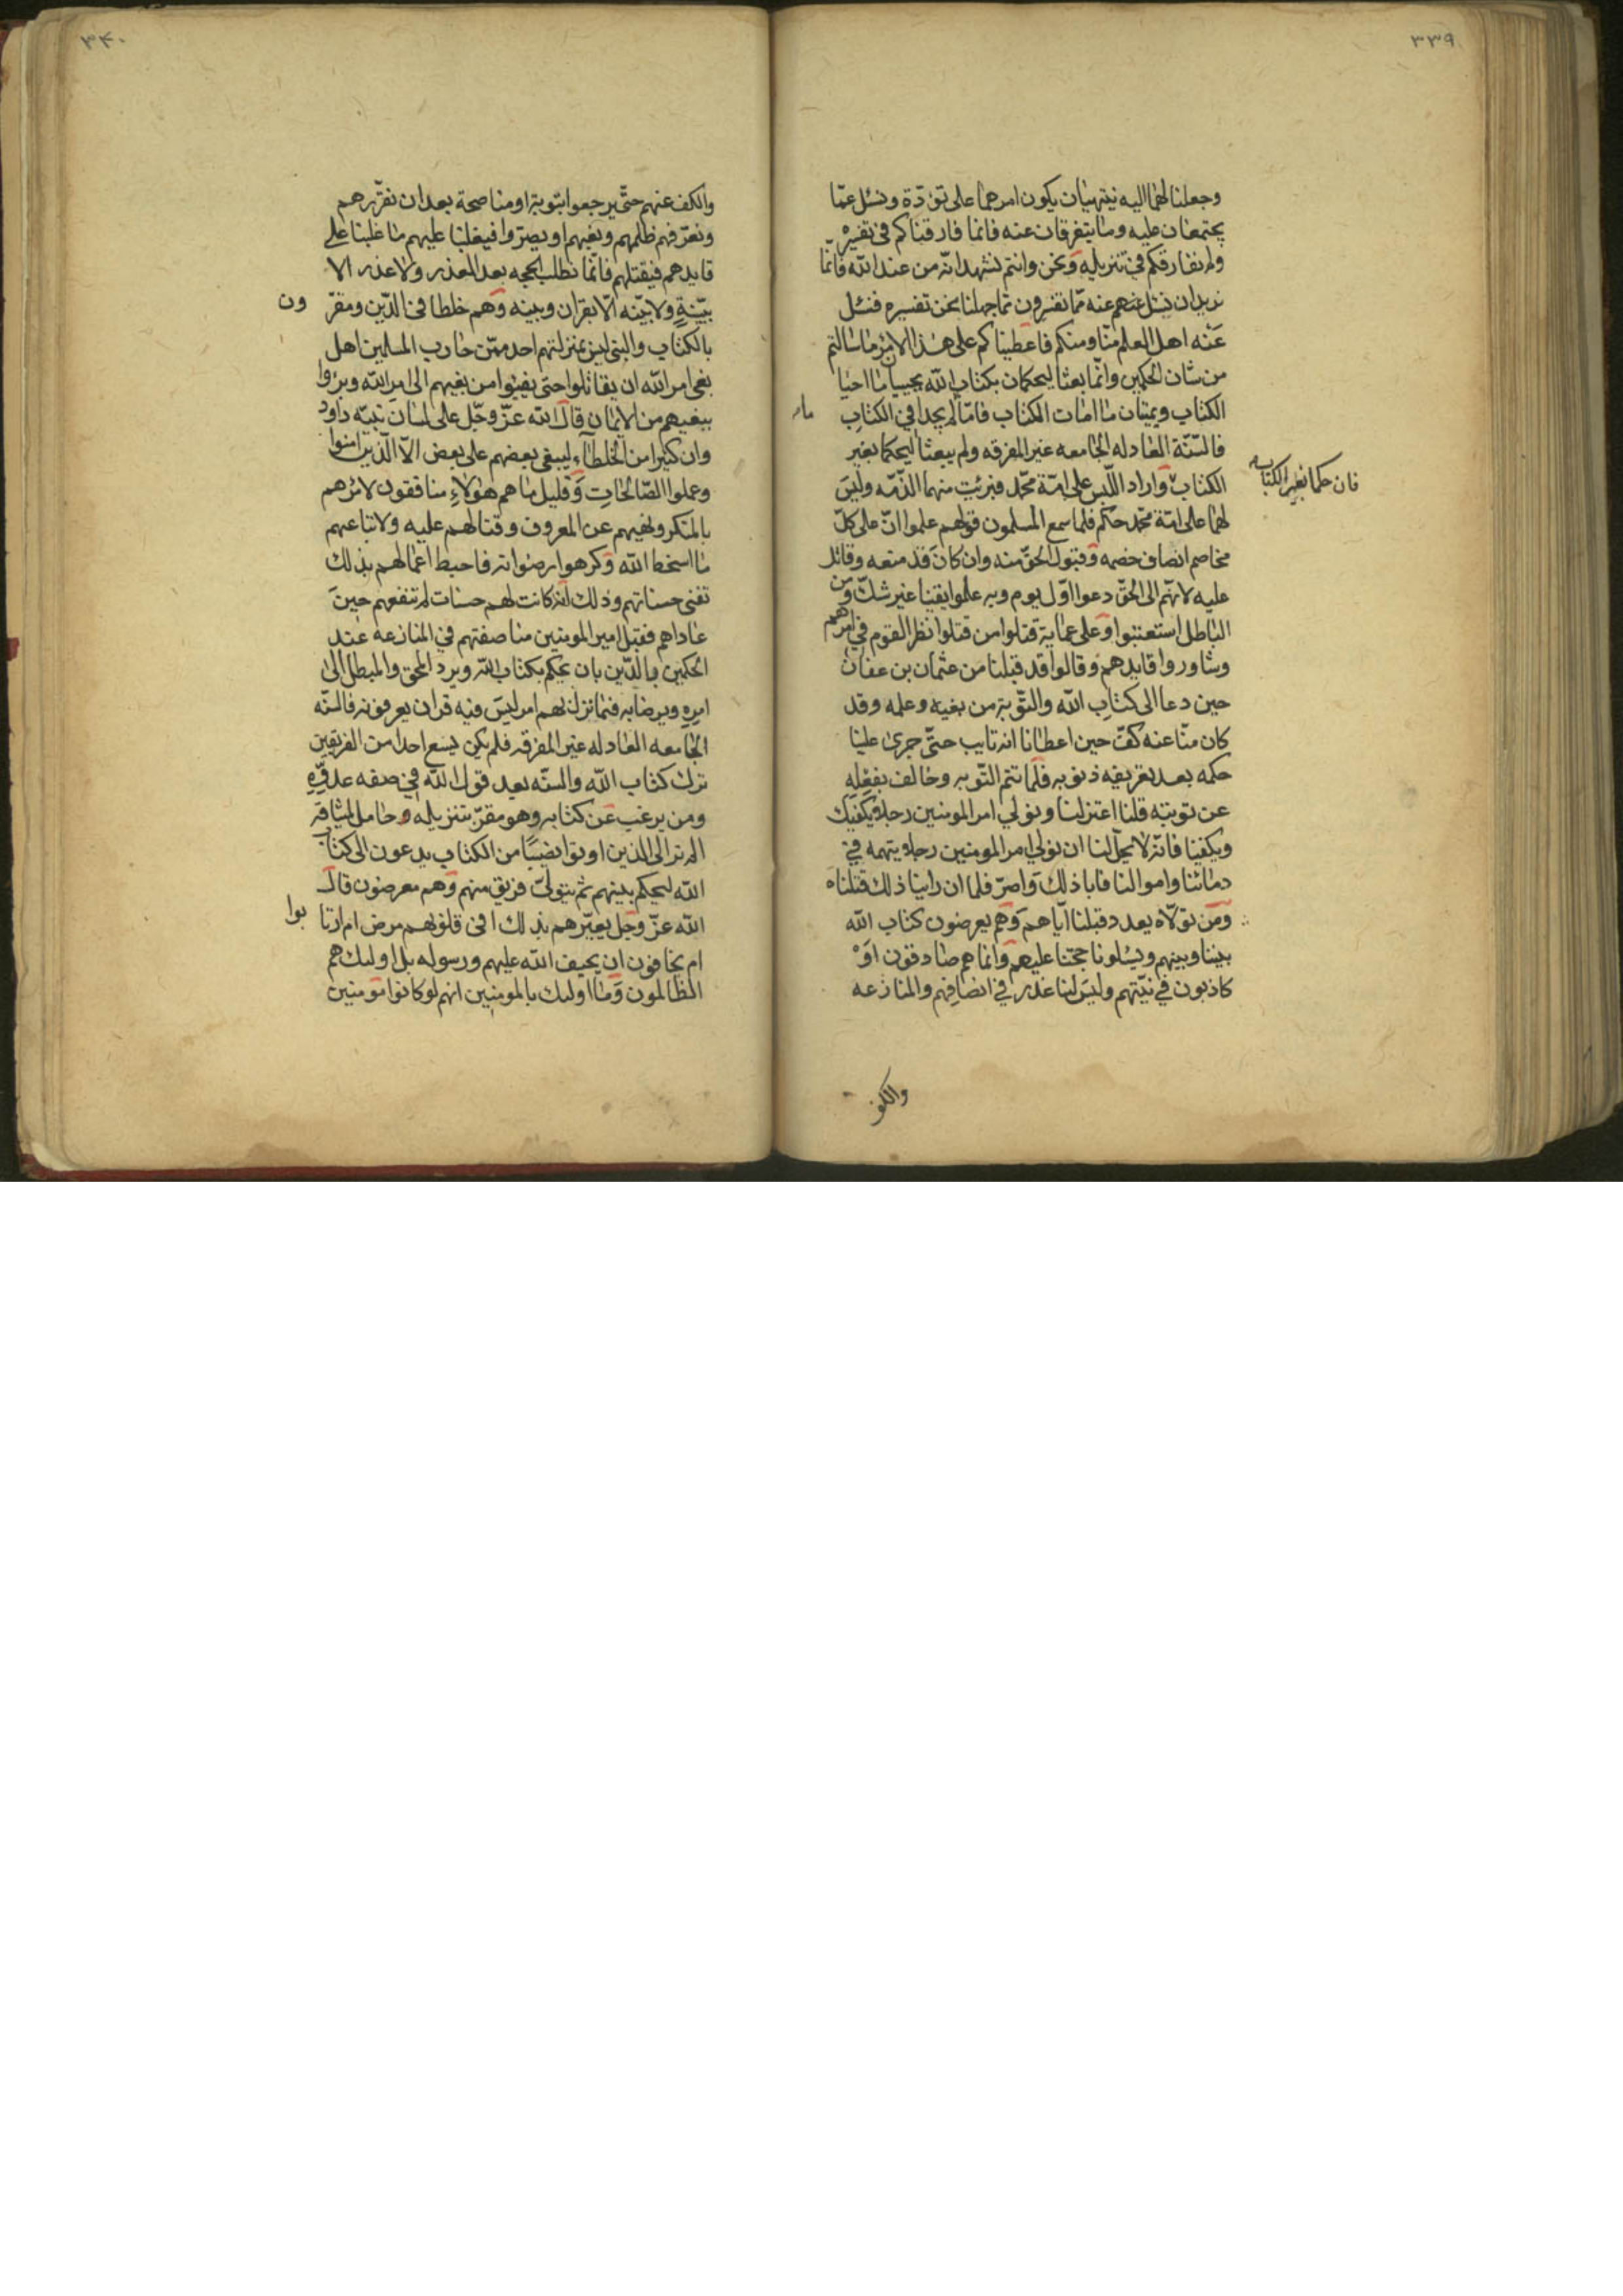 ٣٣٩
وجعلنا لهما اليه ينتهيان يكون امرهما على تؤدّة ونسئل عمّا
يجتمعان عليه وما يتفرقان عنه فانما فارقناكم في تفسيره
ولم نفارقكم في تنزيله ونحن وانتم نشهد انّه من عند الله فانّما
نريد ان نسئل عنهم عنه ممّا تفسرون مما جهلنا نحن تفسيره فنسئل
عنه اهل العلم منّا ومنكم فاعطيناكم على هذا الامر ما سالتم
من شان الحكمين وانّما بعثا ليحكمان بكتاب الله يحييا ما احيا
الكتاب ويميتان ما امات الكتاب فامّا لم يجدا في الكتاب
فالسّنّة العادله الجامعه غير المفرقه ولم يبعثا ليحكما بغير
فان حكما بغير الكتاب
الكتاب واراد اللّبس على امّة محمّد فبرئت منهما الذّمّه وليس
لهما على امّة محمّد حكم فلما سمع المسلمون قولهم علموا انّ على كلّ
مخاصم انصاف خصمه وقبول الحقّ منه وان كان قد منعه وقاتل
عليه لانّهم الى الحقّ دعوا اوّل يوم وبه علموا يقينا غير شكّ ومن
الباطل استعتبوا وعلى عماية قتلوا من قتلوا نظر القوم في امرهم
وشاوروا قايدهم وقالوا قد قبلنا من عثمان بن عفان
حين دعا الى كتاب الله والتّوبة من بغيه وعلمه وقد
كان منّا عنه كفّ حين اعطانا انه تايب حتّى جرى علينا
حكمه بعد تعريفه ذنوبه فلمّا تتم التّوبه وخالف بفعله
عن توبته قلنا اعتزلنا ونولي امر المومنين رجلا يكفيك
ويكفينا فانّه لا يحلّ لنا ان نولي امر المومنين رجلا يتهمه في
دمائنا واموالنا فابا ذلك واصرّ فلما ان راينا ذلك قتلناه
ومن تولّاه بعدد قبلنا ايّاهم وهم يعرضون كتاب الله
بيننا وبينهم ويسئلونا حجتنا عليهم وانما هم صادقون او
كاذبون في نيّتهم وليس لنا عذر في انصافهم والمنازعه
والكف
٣٤٠
والكف عنهم حتّى يرجعوا بتوبة او مناصحة بعد ان نقرّرهم
ونعرّفهم ظلمهم وبغيهم او يصرّوا فيغلبنا عليهم ما غلبنا على
قايدهم فيقتلهم فانّما نطلب الحجه بعد العذر ولا عذر الا
ببيّنة ولا بيّنه الّا بقران وبينه وهم خلطا في الدّين ومقرّ
ون
بالكتاب والنبي ليس بمنزلتهم احد ممّن حارب المسلمين اهل
بغى امر الله ان يقاتلوا حتى يفيئوا من بغيهم الى امر الله وبرؤا
ببغيهم من الايمان قال الله عزّ وجّل على لسان نبيّه داود
وان كثيرا من الخلطآء ليبغي بعضهم على بعض الّا الّذين امنوا
وعملوا الصّالحات وقليل ما هم هؤلاءِ منافقون لامرهم
بالمنكر ونهيهم عن المعروف وقتالهم عليه ولاتباعهم
ما اسخط الله وكرهوا رضوانه فاحبط اعمالهم بذلك
تفنى حسناتهم وذلك انه كانت لهم حسنات لم تنفعهم حين
عاداهم فقبل امير المومنين مناصفتهم في المنازعه عند
الحكمين بالدّين بان يحكم بكتاب الله ويرد المحق والمبطل الى
امره ويرضا به فما نزل بهم امر ليس فيه قران يعرفونه فالسنّه
الجامعه العادله غير المفرقه فلم يكن يسع احدا من الفريقين
ترك كتاب الله والسنّه بعد قول الله في صفه عدوّه
ومن يرغب عن كتابه وهو مقرّ بتنزيله وحامل لميثاقه
الم تر الى الذين اوتوا نصيبًا من الكتاب يدعون الى كتاب
الله ليحكم بينهم ثم يتولىّ فريق منهم وهم معرضون قال
الله عزّ وجل يعيّرهم بذلك افى قلوبهم مرض ام ارتا
بوا
ام يخافون ان يحيف الله عليهم ورسوله بل اوليك هم
الظالمون وما اوليك بالمومنين انهم لو كانوا مومنين